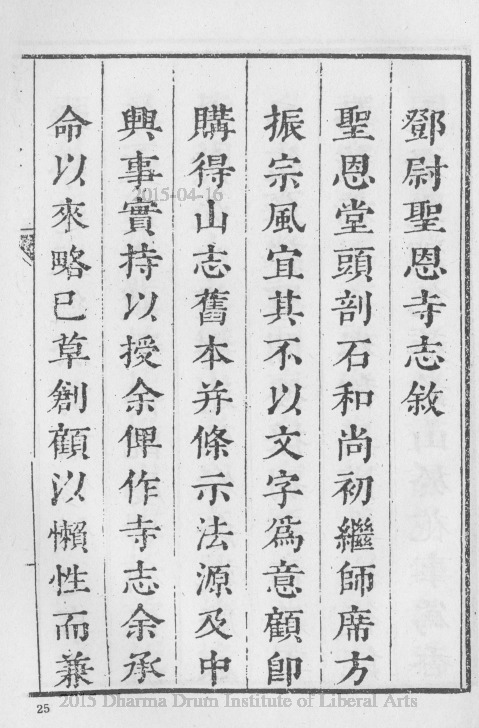 鄧尉聖恩寺志敘
聖恩堂頭剖石和尚初繼師席方
振宗風宜其不以文字爲意顧卽
購得山志舊本并條示法源及中
興事實持以授余俾作寺志余承
命以來略已草創顧以懶性而兼
2015-04-16
25
2015 Dharma Drum Institute of Liberal Arts